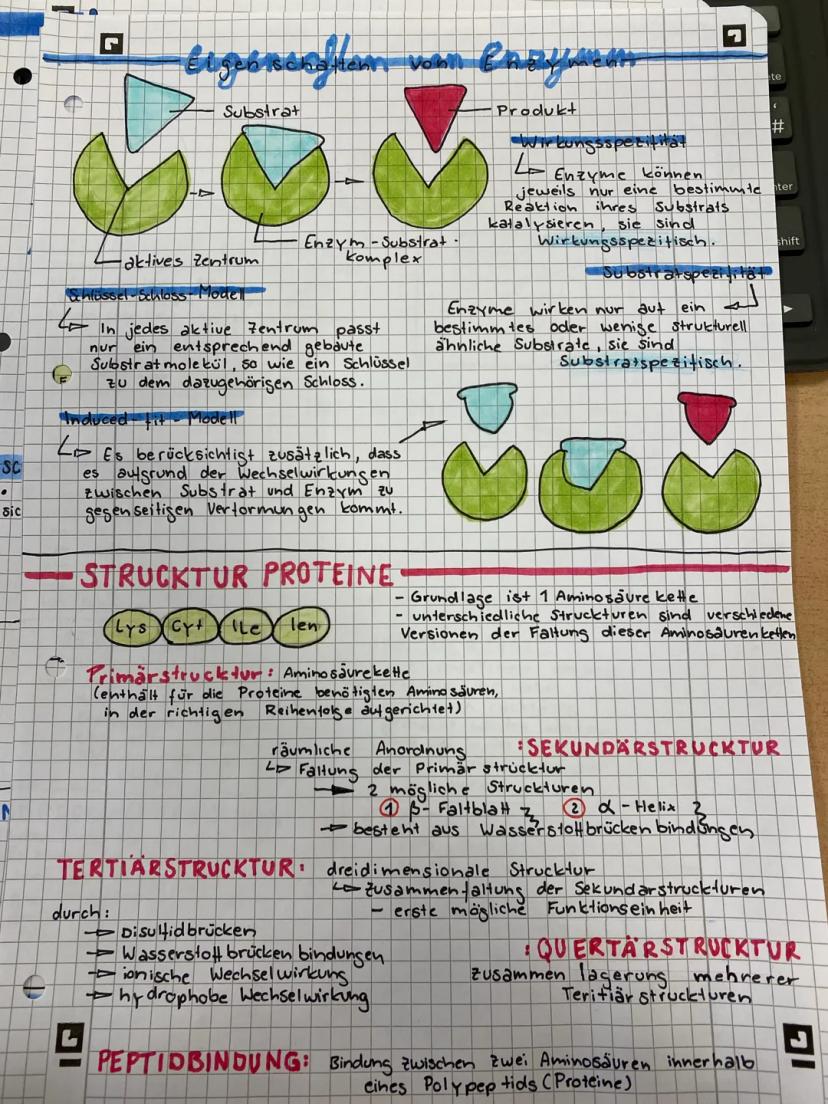 Eigenschaften von Enzymen
Substrat
Produkt
aktives Zentrum
Enzym-Substrat-
komplex
Wirkungsspezifität
Enzyme können
jeweils nur eine bestimmte
Reaktion ihres Substrats
katalysieren, sie sind
Wirkungsspezifisch.
Substratspezifität
Enzyme wirken nur auf ein
bestimmtes oder wenige strukturell
ähnliche Substrate, sie sind
Substratspezifisch.
Schlüssel-Schloss-Modell
In jedes aktive Zentrum passt
nur ein entsprechend gebaute
Substratmolekül, so wie ein Schlüssel
zu dem dazugehörigen Schloss.
Induced-fit-Modell
Es berücksichtigt zusätzlich, dass
es aufgrund der Wechselwirkungen
zwischen Substrat und Enzym zu
gegenseitigen Verformungen kommt.
STRUCKTUR PROTEINE
Lys Cyt ILe len
- Grundlage ist 1 Aminosäurekette
- unterschiedliche Struckturen sind verschiedene
Versionen der Faltung dieser Aminosäurenketten
Primärstrucktur: Aminosäurekette
(enthält für die Proteine benötigten Aminosäuren,
in der richtigen Reihenfolge aufgerichtet)
räumliche Anordnung :SEKUNDÄRSTRUCKTUR
Faltung der Primärstrucktur
2 mögliche Struckturen
① β-Faltblatt ② α-Helix
besteht aus Wasserstoffbrückenbindungen
TERTIÄRSTRUCKTUR: dreidimensionale Strucktur
zusammenfaltung der Sekundärstruckturen
- erste mögliche Funktionseinheit
durch:
Disulfidbrücken
Wasserstoffbrückenbindungen
ionische Wechselwirkung
hydrophobe Wechselwirkung
:QUERTÄRSTRUCKTUR
zusammenlagerung mehrerer
Teritiärstruckturen
PEPTIDBINDUNG: Bindung zwischen zwei Aminosäuren innerhalb
eines Polypeptids (Proteine)
#
shift